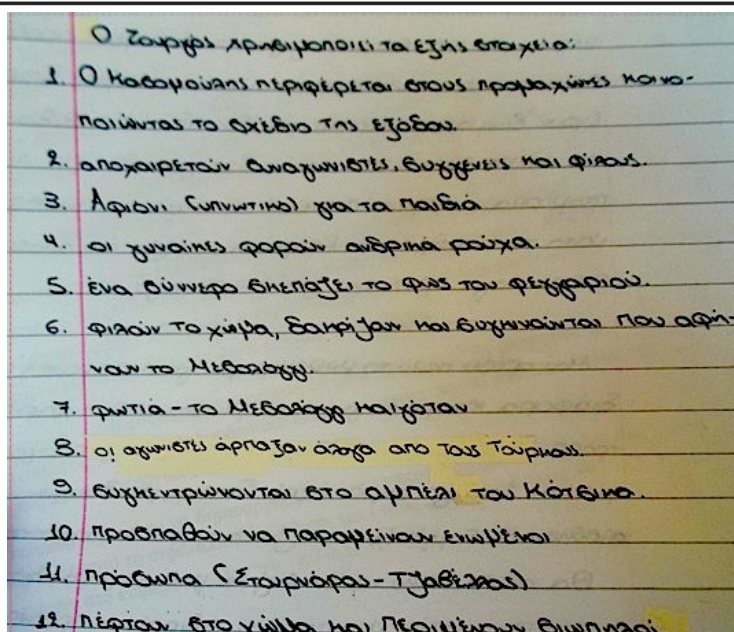 Ο Ζουργός χρησιμοποιεί τα εξής στοιχεία:
1. Ο Κασομούλης περιφέρεται στους προμαχώνες κοινο-
ποιώντας το σχέδιο της εξόδου.
2. αποχαιρετούν συναγωνιστές, συγγενείς και φίλους.
3. Αφιόνι (υπνωτικό) για τα παιδιά
4. οι γυναίκες φορούν ανδρικά ρούχα.
5. ένα σύννεφο σκεπάζει το φως του φεγγαριού.
6. φιλούν το χώμα, δακρίζουν και συγκινούνται που αφή-
νουν το Μεσολόγγι.
7. φωτιά - το Μεσολόγγι καιγόταν
8. οι αγωνιστές άρπαξαν άλογα από τους Τούρκους.
9. συγκεντρώνονται στο αμπέλι του Κότσικα.
10. προσπαθούν να παραμείνουν ενωμένοι
11. πρόσωπα (Στουρνάρας - Τζαβέλλας)
12. πέφτουν στο χώμα και περιμένουν σιωπηλοί